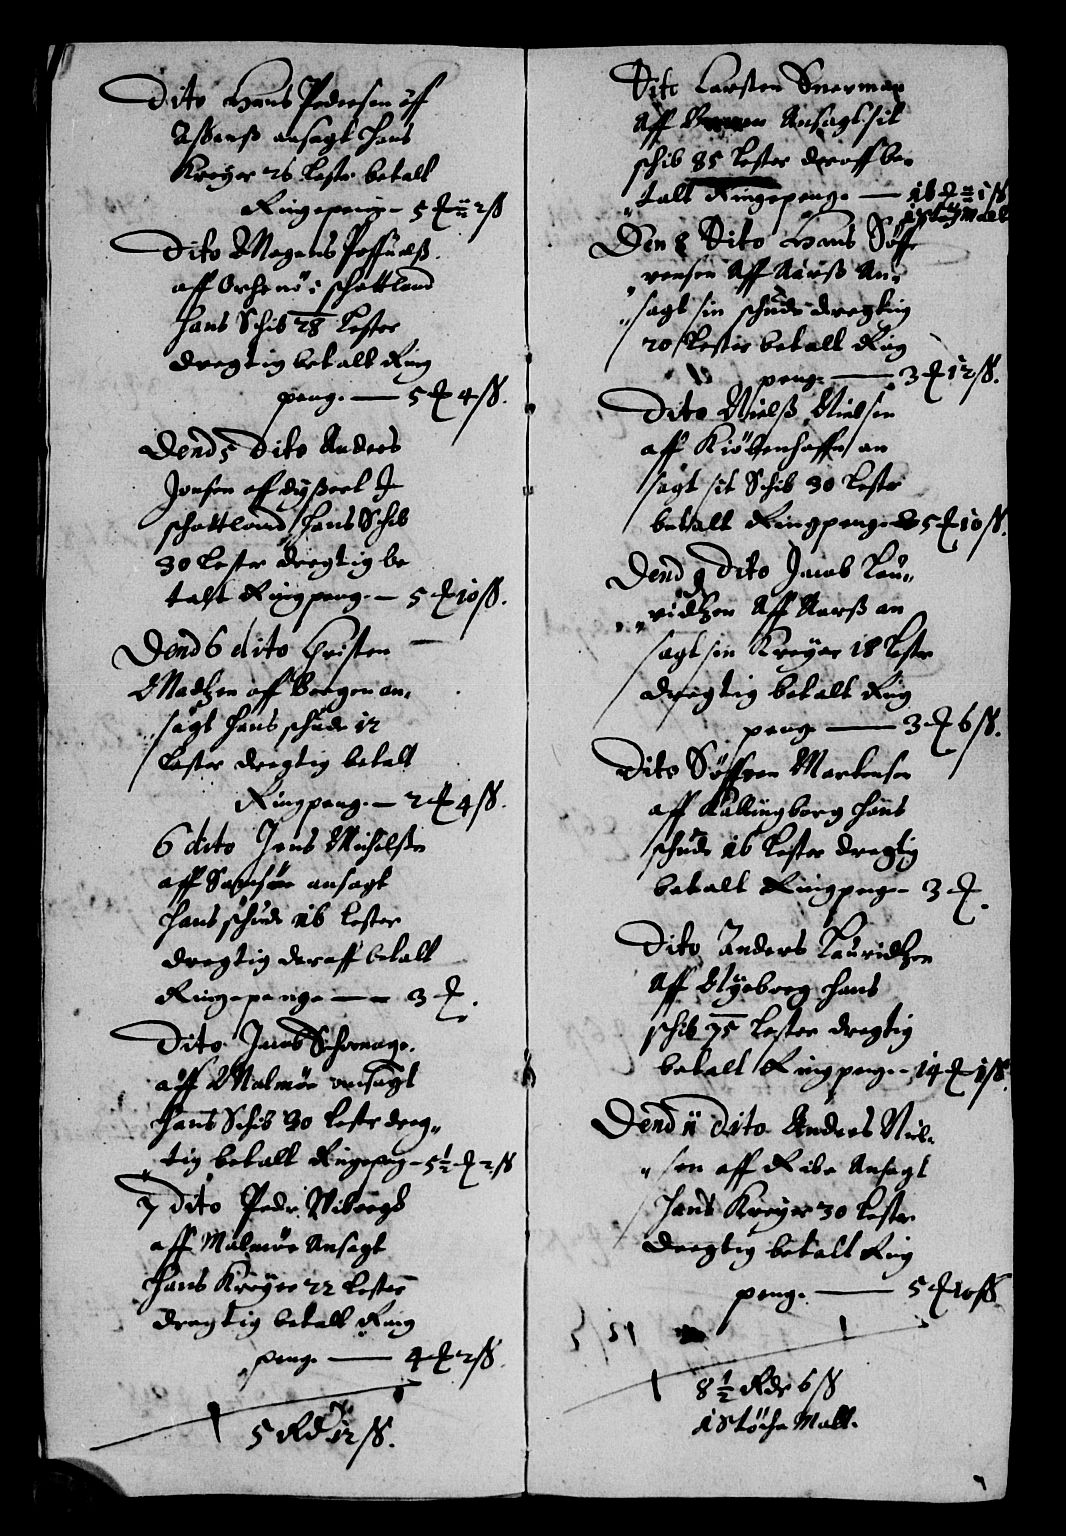 Dito Hans Pedersen off
Assens ansagt hans
Kreyer 26 lester betalt
Ringepenge - 5 ₰ 2 ß
Dito Mogens
aff Orchenö i schottland
hans Schib 28 Lester
dregtig betalt Ring
penge — 5 ₰ 4 ß.
Dend 5 Dito Anders
Jonsen af dyseel I
schottland hans Schib
30 Lester dregtig be
talt Ringpenge — 5 ₰ 10 ß.
Dend 6 dito Christen
Madtzen aff Bergen an,
sagt hans schude 12
Lester dregtig betalt
Ringpenge — 2 ₰ 4 ß.
6 dito Jens Michelsen
aff Samsöe ansagt
hans schude 16 Lester
dregtig deraff betalt
Ringepenge — 3 ₰.
Dito Jacob
aff Malmöe ansagt
hans Schib 30 Lester dreg„
tig betalt Ringepeng - 5½ ₰ 2 ß
7 dito Peder Wiborgh
aff Malmöe Ansagt
hans Kreyer 22 Lester
dregtig betalt Ring
penge — 4 ₰ 2 ß.
5 Rd 12 ß.
Dito Karsten Snerman
Aff Ansagt sit
schib 85 Lester deraff be-
talt Ringepenge — 16 ₰ 1 ß
1 stöche Malt
Den 8 Dito Hans Söff
rensen Aff Aarss An„
sagt sin schude dregtig
20 Lester betalt Ring
penge — 3 ₰ 12 ß.
Dito Nielss Nielsen
aff Kiöbenhaffn an
sagt sit Schib 30 Lester
betalt Ringpenge 5 ₰ 10 ß.
Dend 9 Dito Jacob Lau„
ridtzen Aff Aarss an
sagt sin Kreyer 18 Lester
dregtig betalt Ring
penge — 3 ₰ 6 ß.
Dito Söffren Mortensen
aff Kallingborg hans
schude 16 Lester dregtig
betalt Ringpenge - 3 ₰.
Dito Anders Lauridtzen
Aff Nyeborg hans
schib 75 Lester dregtig
betalt Ringpenge - 14 ₰ 1 ß.
Dend 11 Dito Anders Niel„
sen aff Ribe Ansagt
hans Kreyer 30 Lester
dregtig betalt Ring
penge — 5 ₰ 10 ß.
8½ Rdr 6 ß
1 stöche Malt.